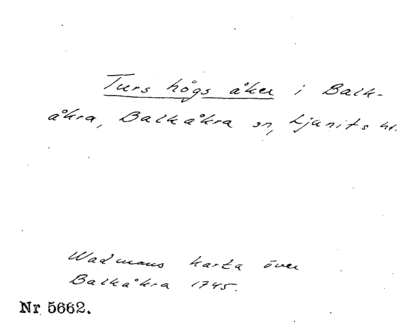 Turs högs åker i Balk-
åkra, Balkåkra sn, Ljunits hd.
Wadmans karta över
Balkåkra 1745.
Nr 5662.